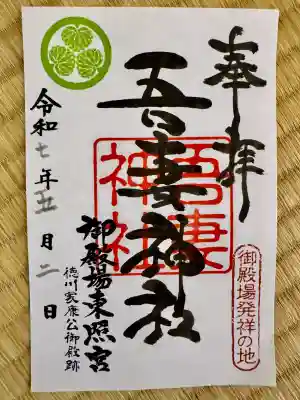 奉拝
御殿場発祥の地
吾妻神社
吾妻
神社
御殿場東照宮
徳川家康公御殿跡
令和七年五月二日